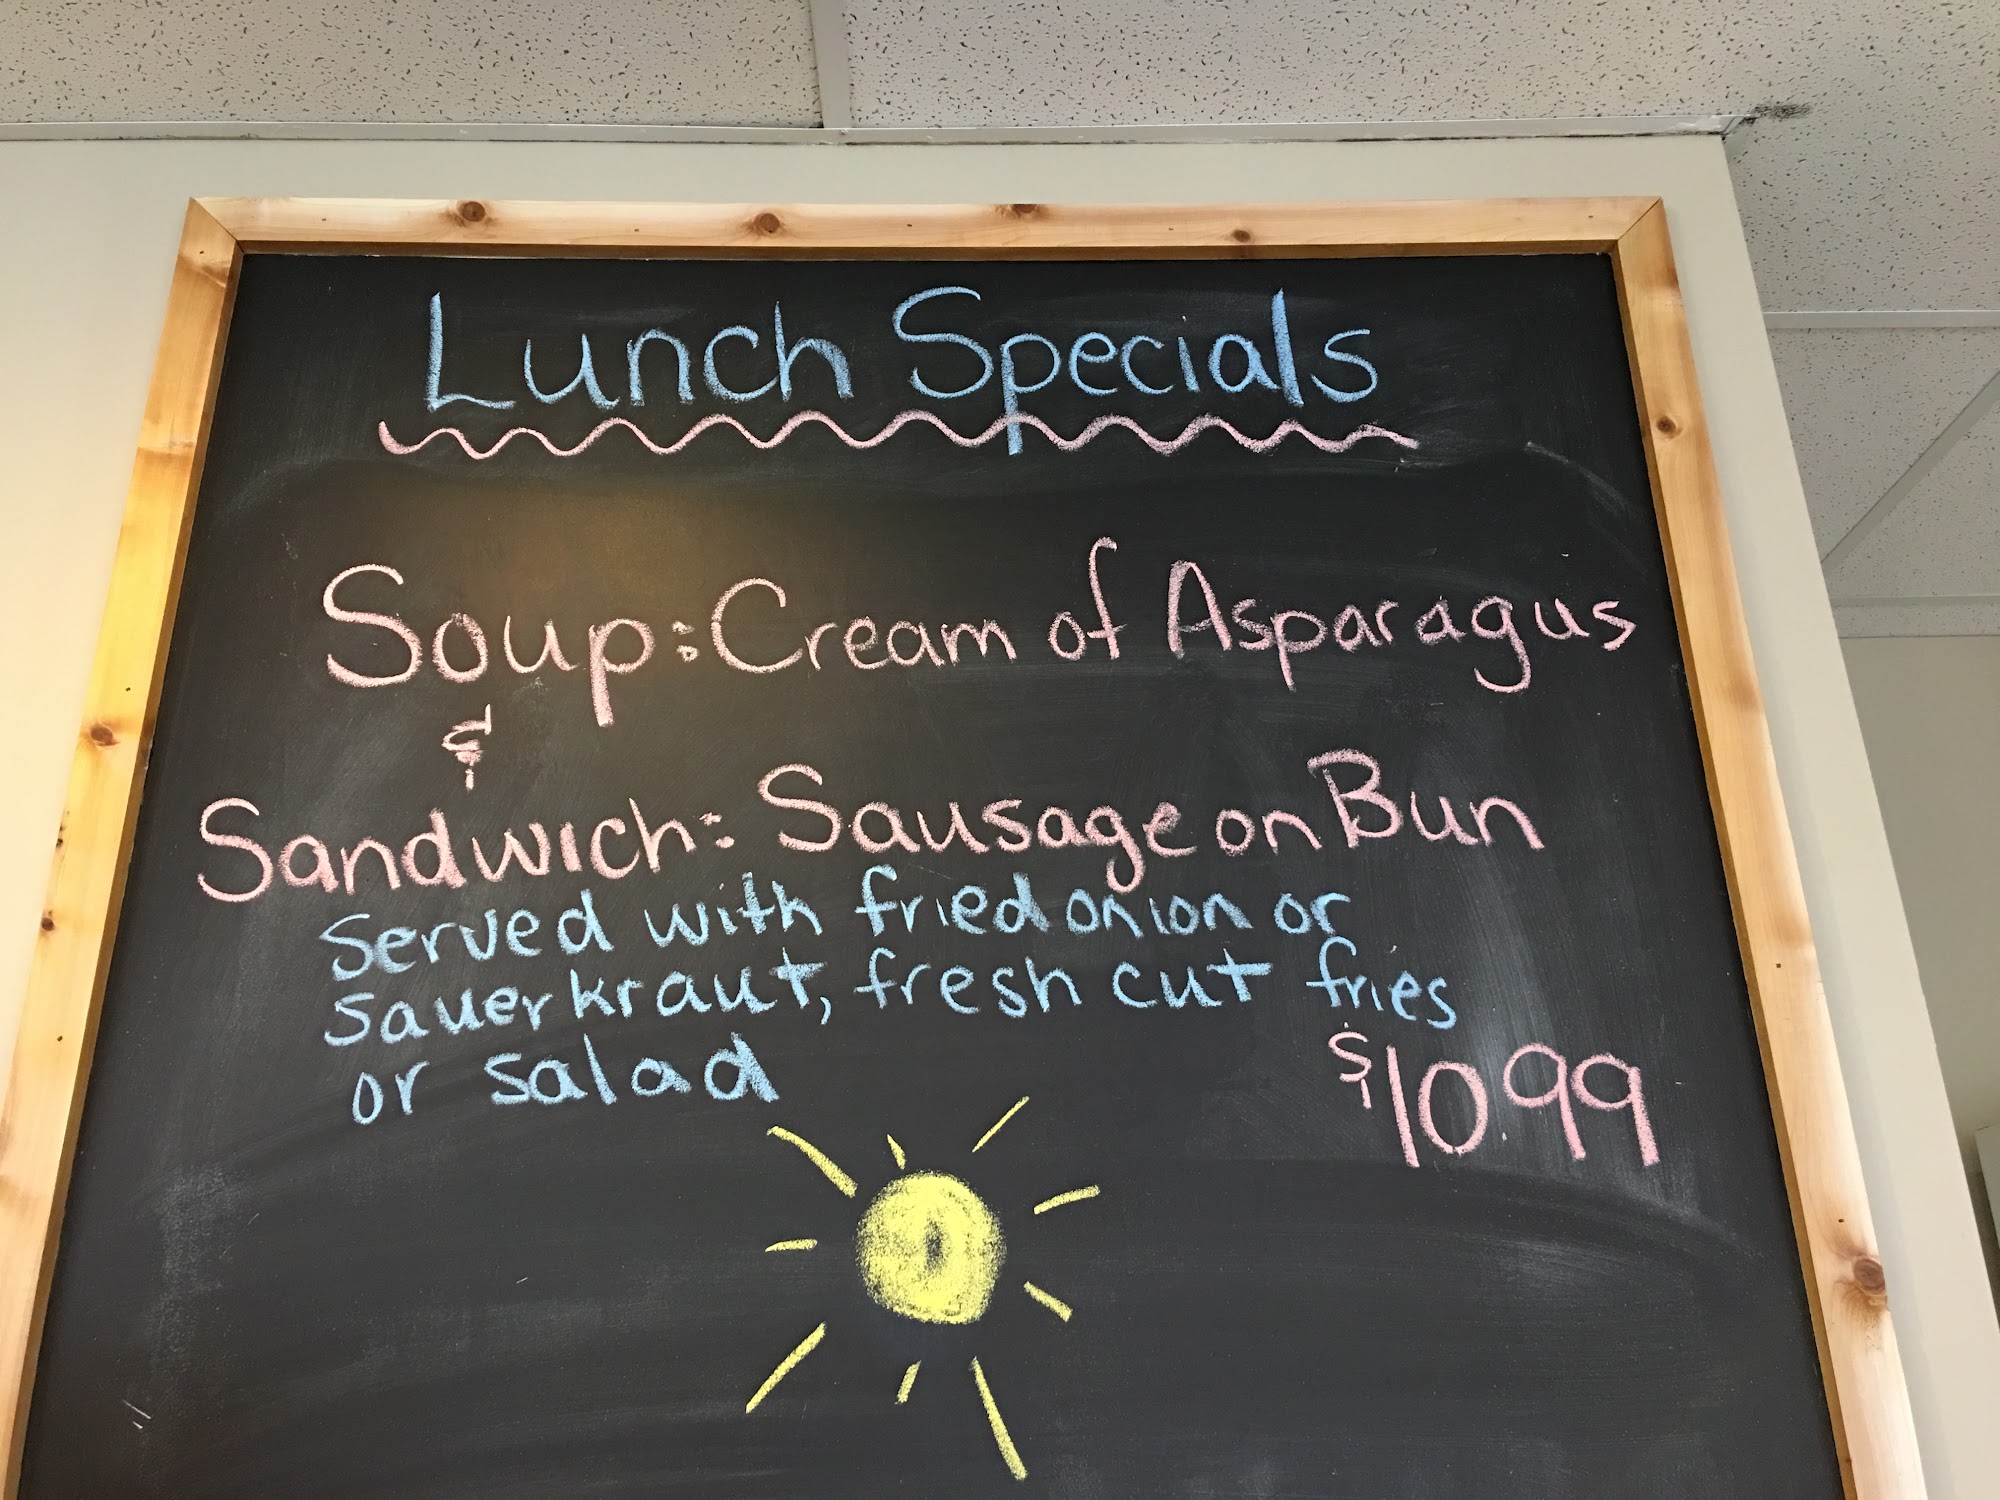 Lunch Specials
Soup: Cream of Asparagus
&
Sandwich: Sausage on Bun
Served with fried onion or
sauerkraut, fresh cut fries
or salad
$10.99